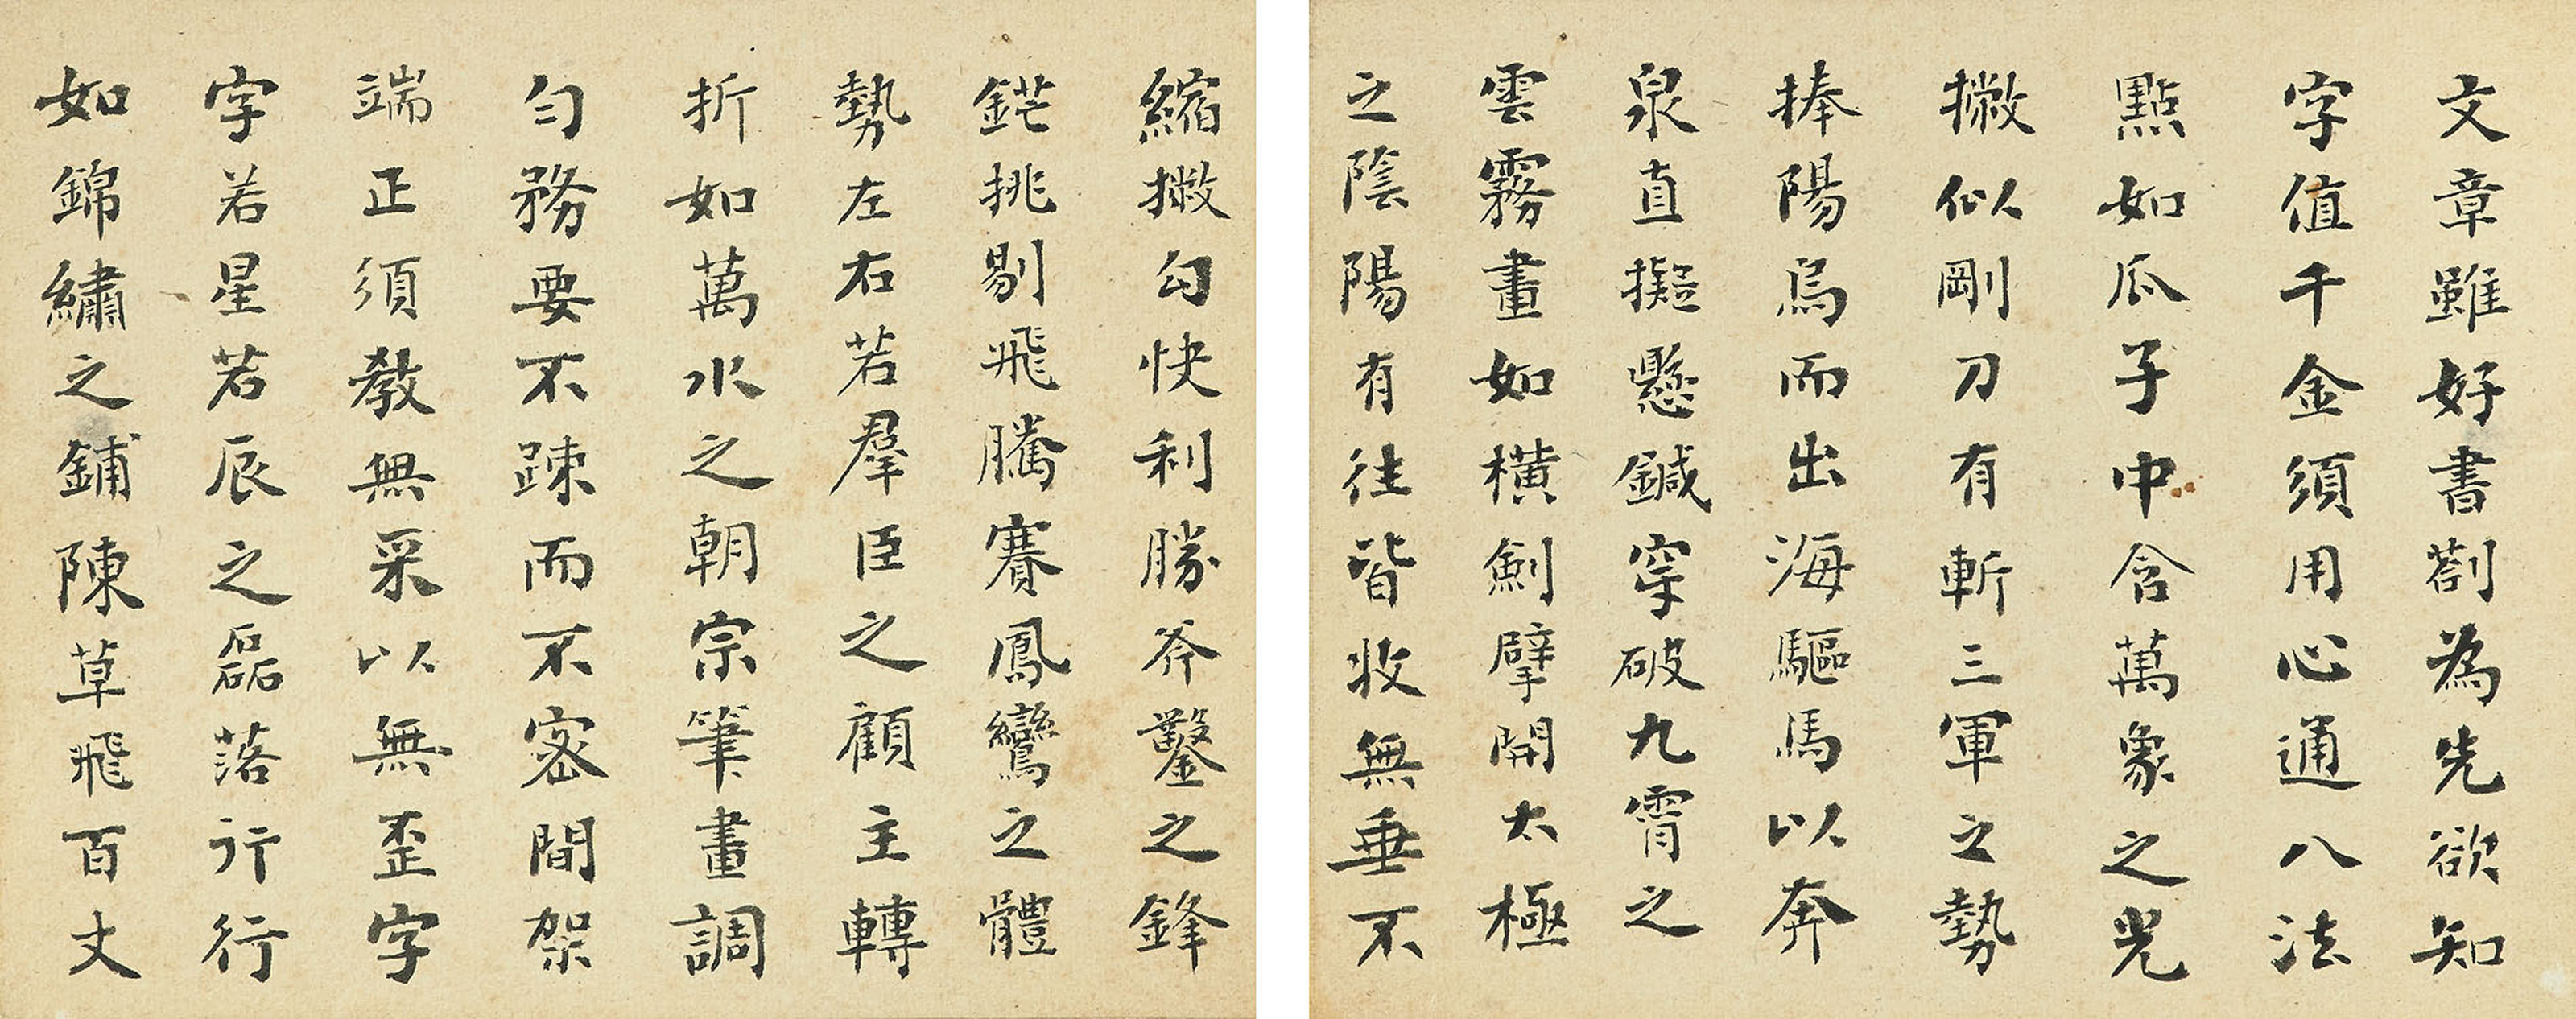 文章雖好書劄為先欲知
字值千金須用心通八法
點如瓜子中含萬象之光
撇似剛刀有斬三軍之勢
捧陽烏而出海驅馬以奔
泉直擬懸鍼穿破九霄之
雲霧畫如橫劍擘開太極
之陰陽有往皆收無垂不
縮撇勾快利勝斧鑿之鋒
鋩挑剔飛騰賽鳳鸞之體
勢左右若羣臣之顧主轉
折如萬水之朝宗筆畫調
勻務要不踈而不密間架
端正須教無采以無歪字
字若星若辰之磊落行行
如錦繡之鋪陳草飛百丈